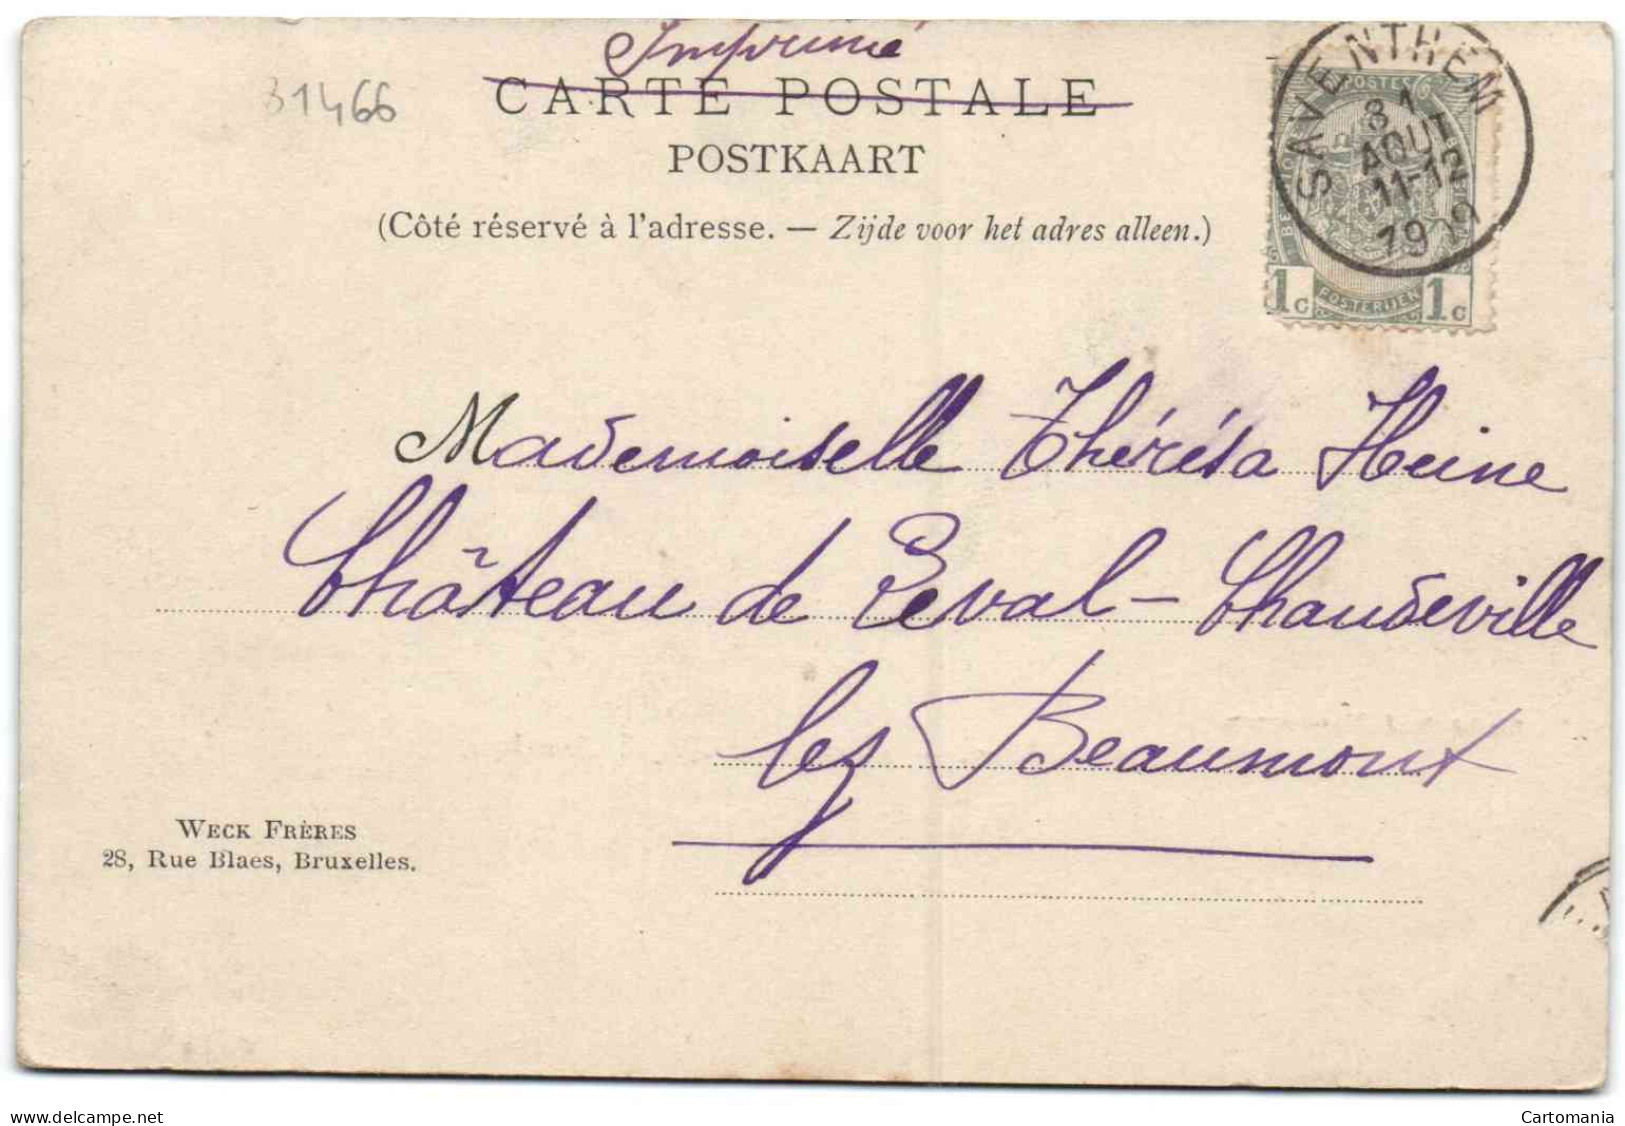 Imprimé
31466
CARTE POSTALE
POSTKAART
(Côté réservé à l'adresse. — Zijde voor het adres alleen.)
SAVENTHEM
31
AOUT
11-12
1909
POSTES
POSTERIJEN
1c 1c
Mademoiselle Thérésa Heine
Château de Leval-Chaudeville
lez Beaumont
WECK FRÈRES
28, Rue Blaes, Bruxelles.
www.delcampe.net
Cartomania